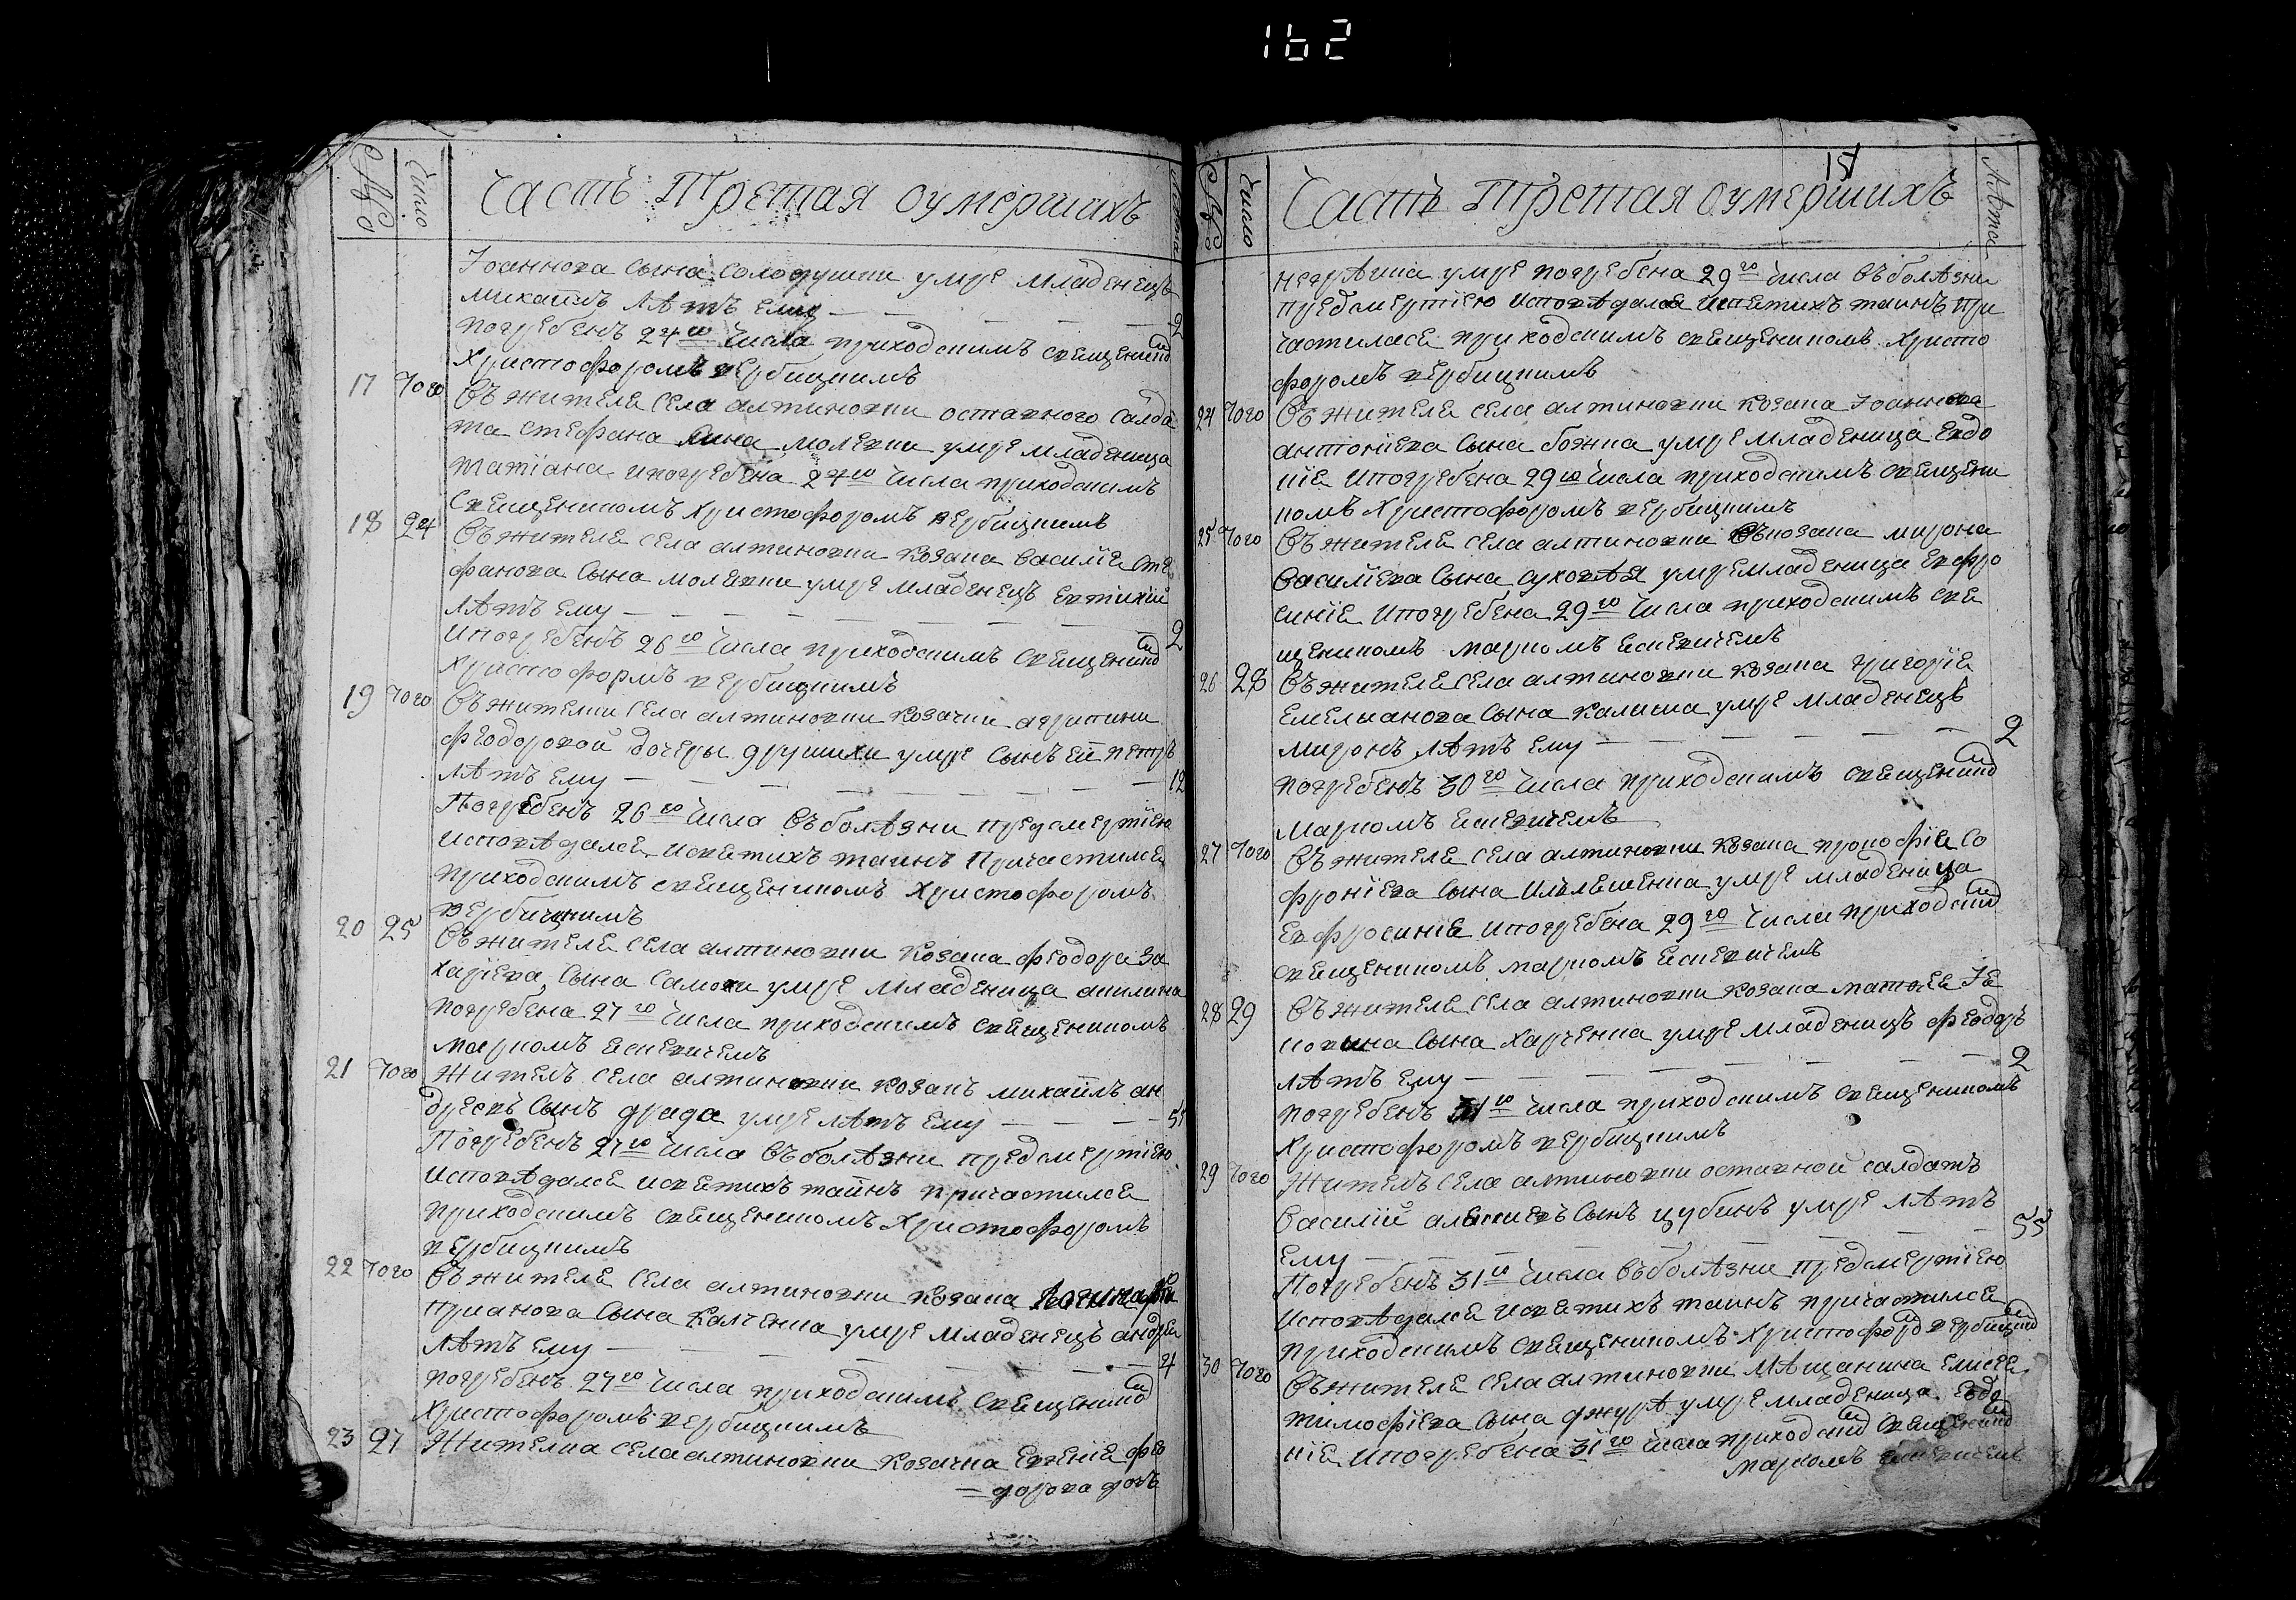 162
№ Число Часть Третая оумершихъ Лѣта
Іоаннова сына Солодушки умре младенецъ
михаилъ лѣтъ ему — — — — 2
погребенъ 24го числа приходскимъ священико
Христофоромъ вербицкимъ
17 Того Въ жителя села алтиновки оставного салда
та стефана сина молявки умре младеница
татіана и погребена 24го числа приходскимъ
священикомъ Христофоромъ вербицкимъ
18 24 Въ жителя села алтиновки козака василія сте
фанова сына молявки умре младенецъ евтихій
лѣтъ ему — — — — 2
и погребенъ 26го числа приходскимъ священико
Христоформъ вербицкимъ
19 Того Въ жителки села алтиновки козачки агрипини
феодоровой дочеры друшихи умре сынъ ей петръ
лѣтъ ему — — — — 12
Погребенъ 26го числа въ болѣзни предсмертію
исповѣдался и святихъ таинъ причастился
приходскимъ священикомъ Христофоромъ
вербицкимъ
20 25 Въ жителя села алтиновки козака феодора за
харіева сына Самохи умре младеница акилина
погребена 27го числа приходскимъ священикомъ
маркомъ ескевичемъ
21 Того Житель села алтиновки козакъ михаилъ ан
дреевъ сынъ драда умре лѣтъ ему — — — 55
Погребенъ 27го числа въ болѣзни предсмертію
исповѣдался и святихъ таинъ причастился
приходскимъ священикомъ Христофоромъ
вербицкимъ
22 Того Въ жителя села алтиновки козака
прианова сына калченка умре младенецъ андрей
лѣтъ ему — — — — 4
погребенъ 27го числа приходскимъ священико
Христофоромъ вербицкимъ
23 27 Жителка села алтиновки козачка Евгенія фео
дорова дочь
151
№ Число Часть Третая оумершихъ Лѣта
умре погребена 29го числа въ болѣзни
предсмертію исповѣдалася и святихъ таинъ при
частилася приходскимъ священикомъ Христо
форомъ вербицкимъ
24 Того Въ жителя села алтиновки козака Іоаннова
антоніева сына божка умре младеница евдо
кія и погребена 29го числа приходскимъ священи
комъ Христофоромъ вербицкимъ
25 Того Въ жителя села алтиновки козака мирона
василіева сына суховѣя умре младеница евфро
синія и погребена 29го числа приходскимъ свя
щеникомъ маркомъ ескевичемъ
26 28 Въ жителя села алтиновки козака григорія
емельянова сына калиша умре младенецъ
миронъ лѣтъ ему — — — — 2
погребенъ 30го числа приходскимъ священико
маркомъ ескевичемъ
27 Того Въ жителя села алтиновки козака прокофія со
фроніева сына илляшенка умре младеница
евфросинія и погребена 29го числа приходски
священикомъ маркомъ ескевичемъ
28 29 Въ жителя села алтиновки козака матфея Іа
ковина сына харченка умре младенецъ феодоръ
лѣтъ ему — — — — 2
погребенъ 31го числа приходскимъ священикомъ
Христофоромъ вербицкимъ
29 Того Житель села алтиновки оставной салдатъ
василій алексиевъ сынъ цубинъ умре лѣтъ
ему — — — — 55
Погребенъ 31го числа въ болѣзни предсмертію
исповѣдался и святихъ таинъ причастился
приходскимъ священикомъ Христофоро вербицки
30 Того Въ жителя села алтиновки мѣщанина елисея
тимофіева сына джурѣ умре младеница евдо
кія и погребена 31го числа приходски священико
маркомъ ескевичемъ